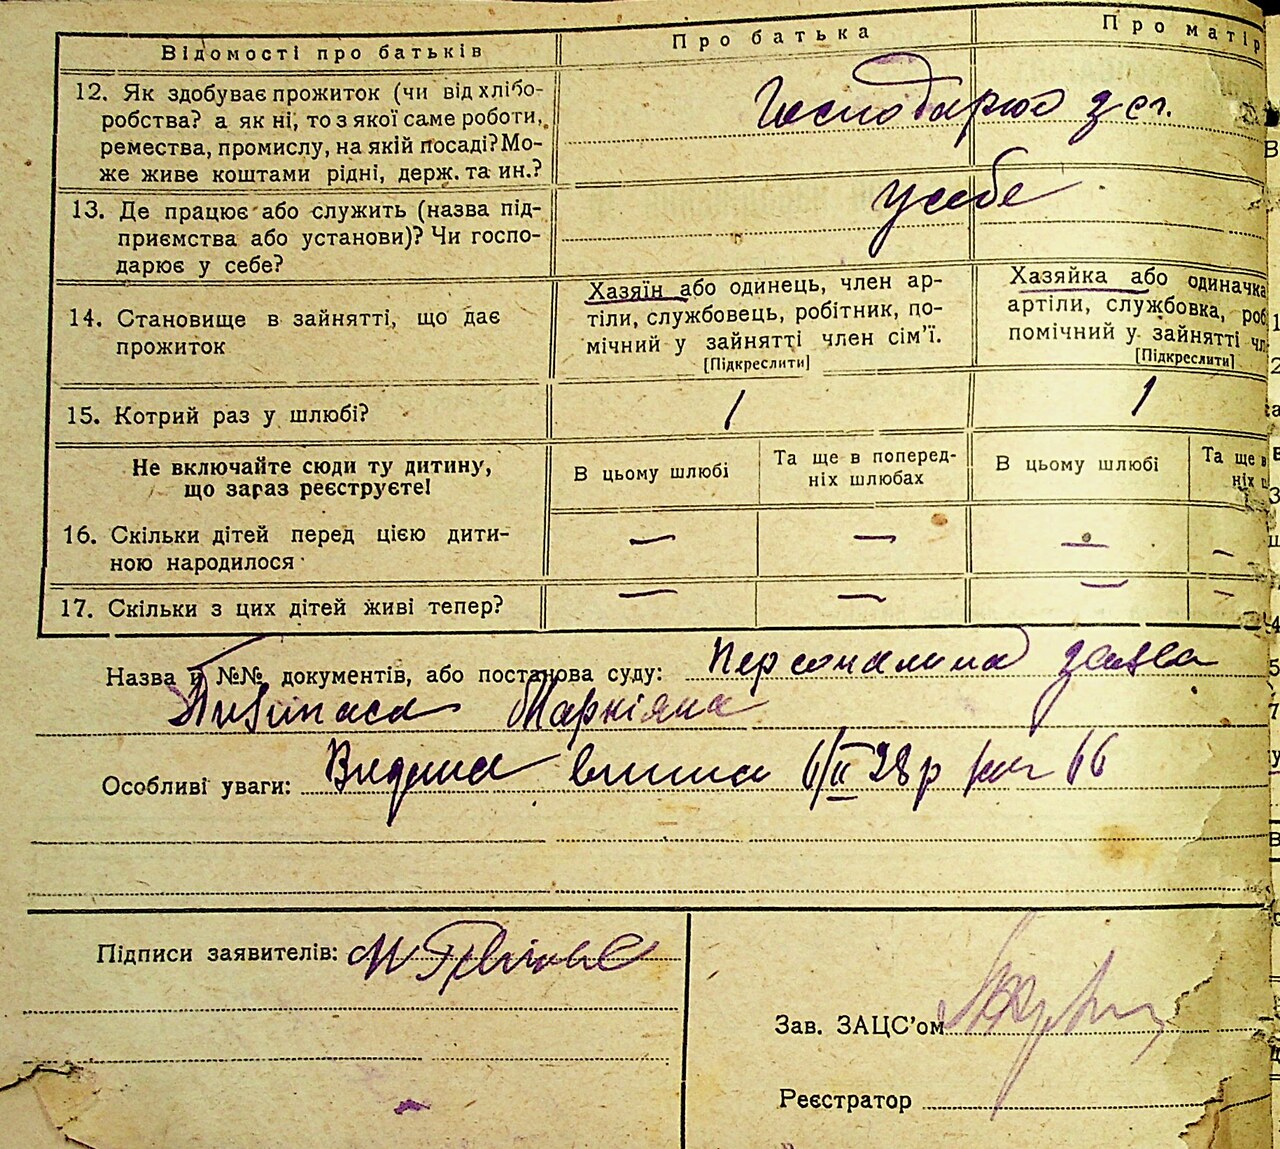 Відомості про батьків
Про батька
Про матір
12. Як здобуває прожиток (чи від хлібо-
робства? а як ні, то з якої саме роботи,
ремества, промислу, на якій посаді? Мо-
же живе коштами рідні, держ. та ин.?
Господарює з сг.
13. Де працює або служить (назва під-
приємства або установи)? Чи госпо-
дарює у себе?
у себе
14. Становище в зайнятті, що дає
прожиток
Хазяїн або одинець, член ар-
тіли, службовець, робітник, по-
мічний у зайнятті член сім'ї.
[Підкреслити]
Хазяйка або одиначка
артіли, службовка, роб
помічний у зайнятті чл
[Підкреслити]
15. Котрий раз у шлюбі?
1
1
Не включайте сюди ту дитину,
що зараз реєструєте!
В цьому шлюбі
Та ще в поперед-
ніх шлюбах
В цьому шлюбі
Та ще в
ніх ш
16. Скільки дітей перед цією дити-
ною народилося
— — — —
17. Скільки з цих дітей живі тепер?
— — — —
Назва й №№ документів, або постанова суду: Персональна заява
Маркіяна
Особливі уваги: Видана 6/II 28р 66
Підписи заявителів:
Зав. ЗАЦС'ом
Реєстратор